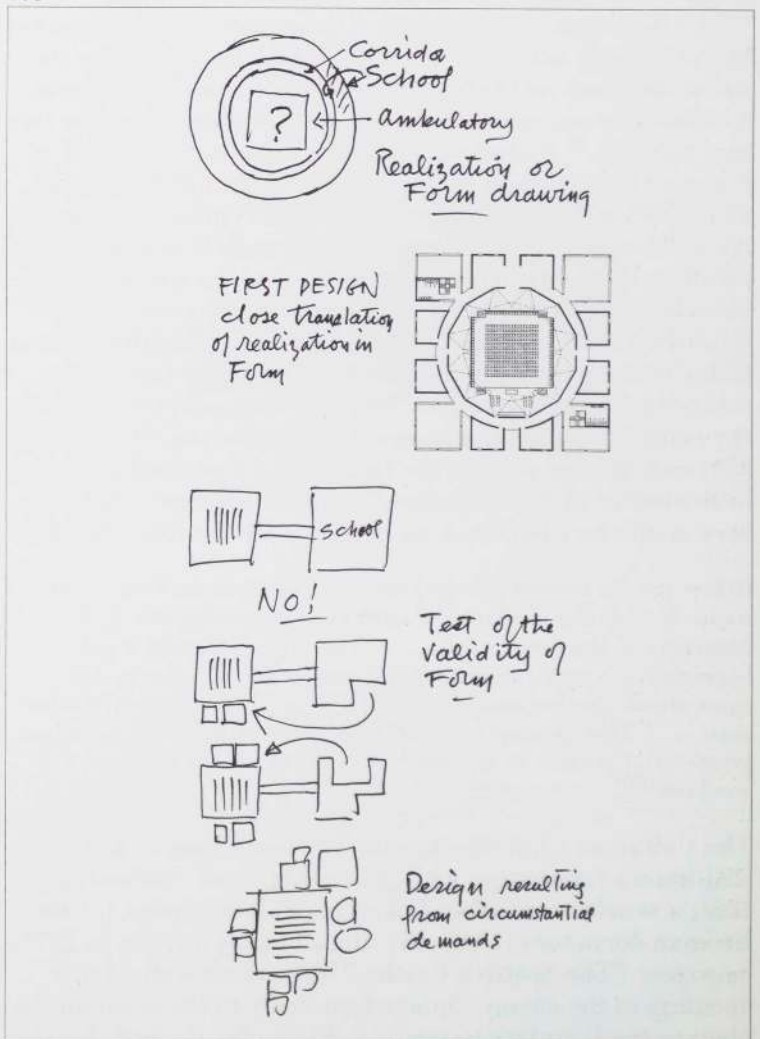 Corridor
School
?
ambulatory
Realization or
Form drawing
FIRST DESIGN
close translation
of realization in
Form
School
NO!
Test of the
validity of
Form
Design resulting
from circumstantial
demands